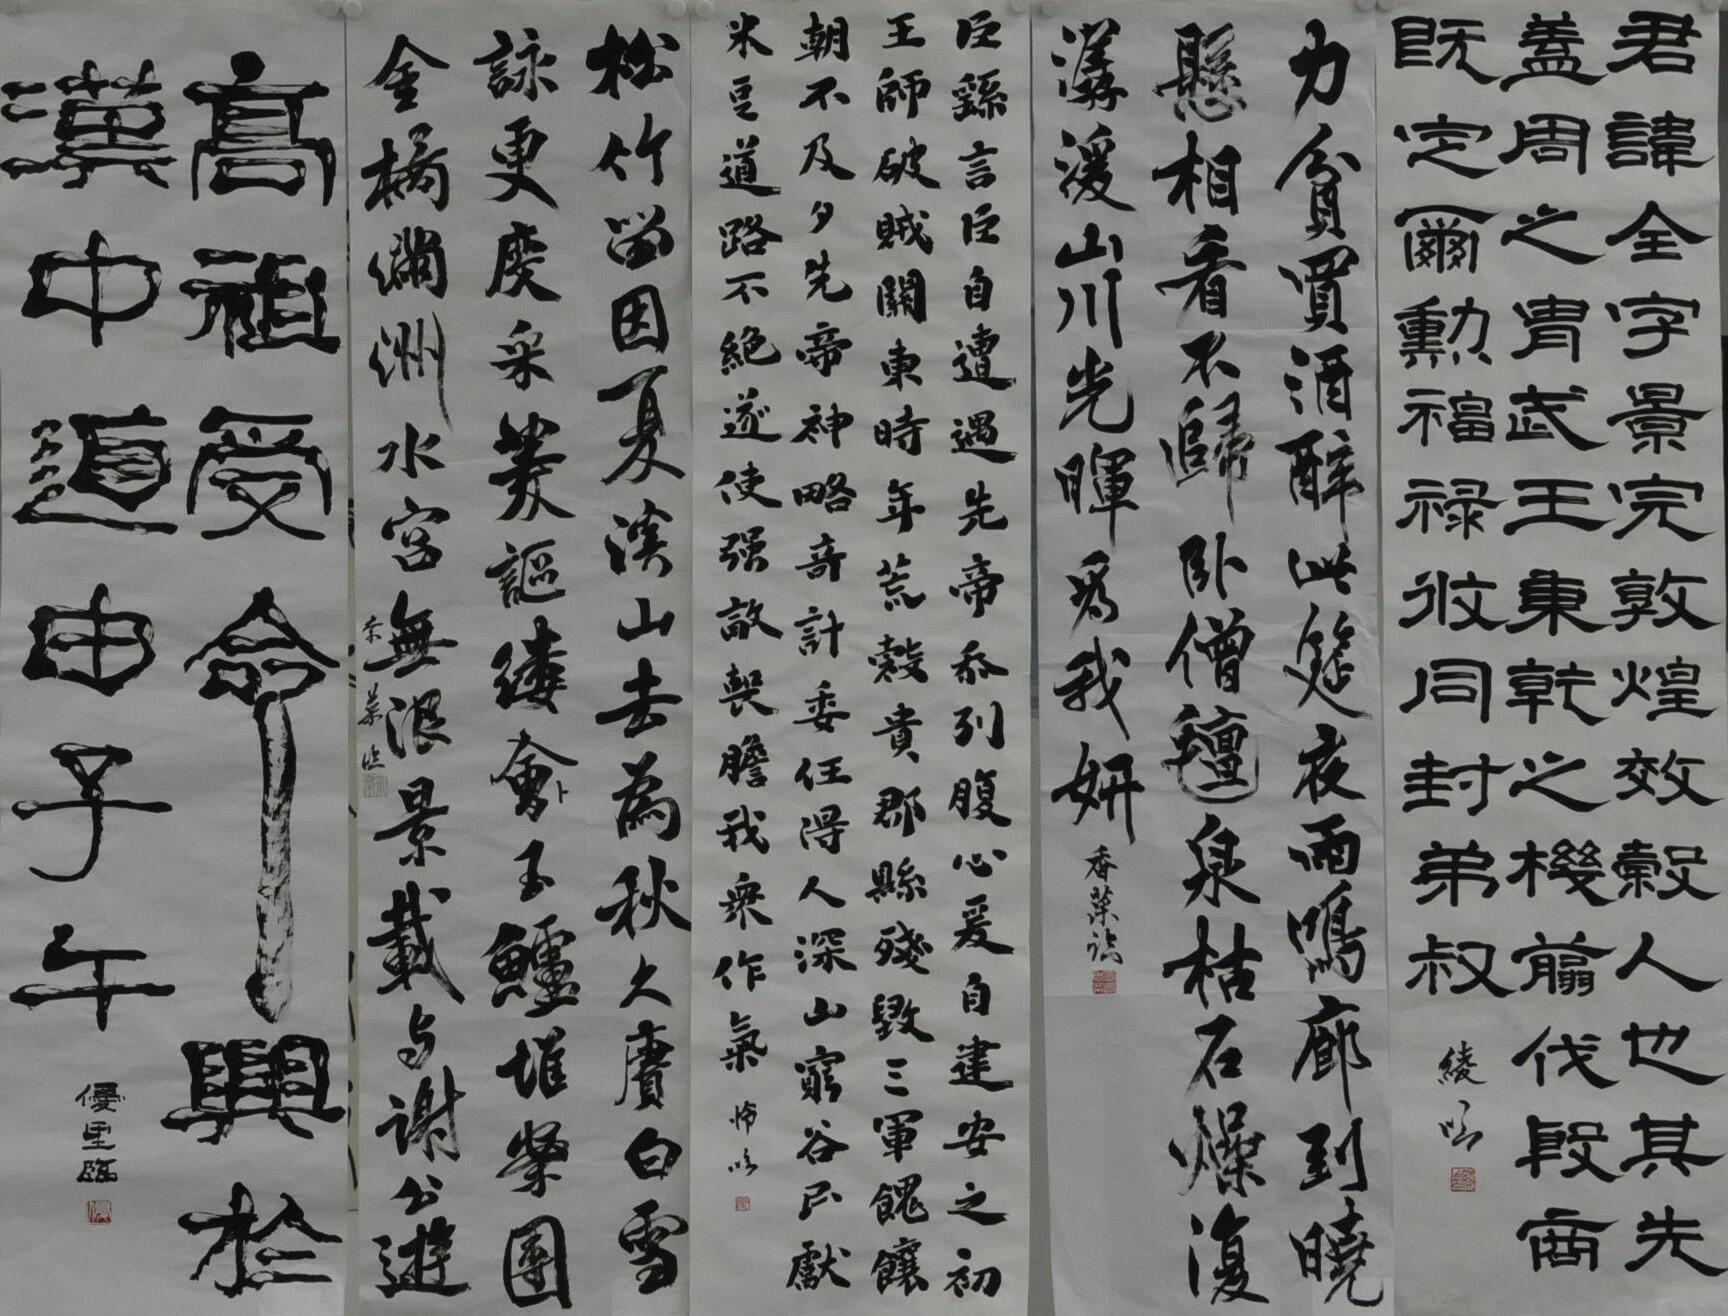 君諱全字景完敦煌效穀人也其先
蓋周之胄武王秉乾之機翦伐殷商
既定爾勳福禄攸同封弟叔
綾臨
力貧買酒醉此筵夜雨鳴廊到曉
懸相看不歸臥僧氈泉枯石燥復
潺湲山川光暉為我妍
香菜臨
臣繇言臣自遭遇先帝忝列腹心爰自建安之初
王師破賊關東時年荒穀貴郡縣殘毀三軍餽饟
朝不及夕先帝神略奇計委任得人深山窮谷民獻
米豆道路不絕遂使强敵喪膽我衆作氣
松竹留因夏溪山去為秋久賡白雪
詠更度采菱謳縷會玉鱸堆案團
金橘滿洲水宮無限景載与謝公遊
高祖受命興於
漢中道由子午
優里臨